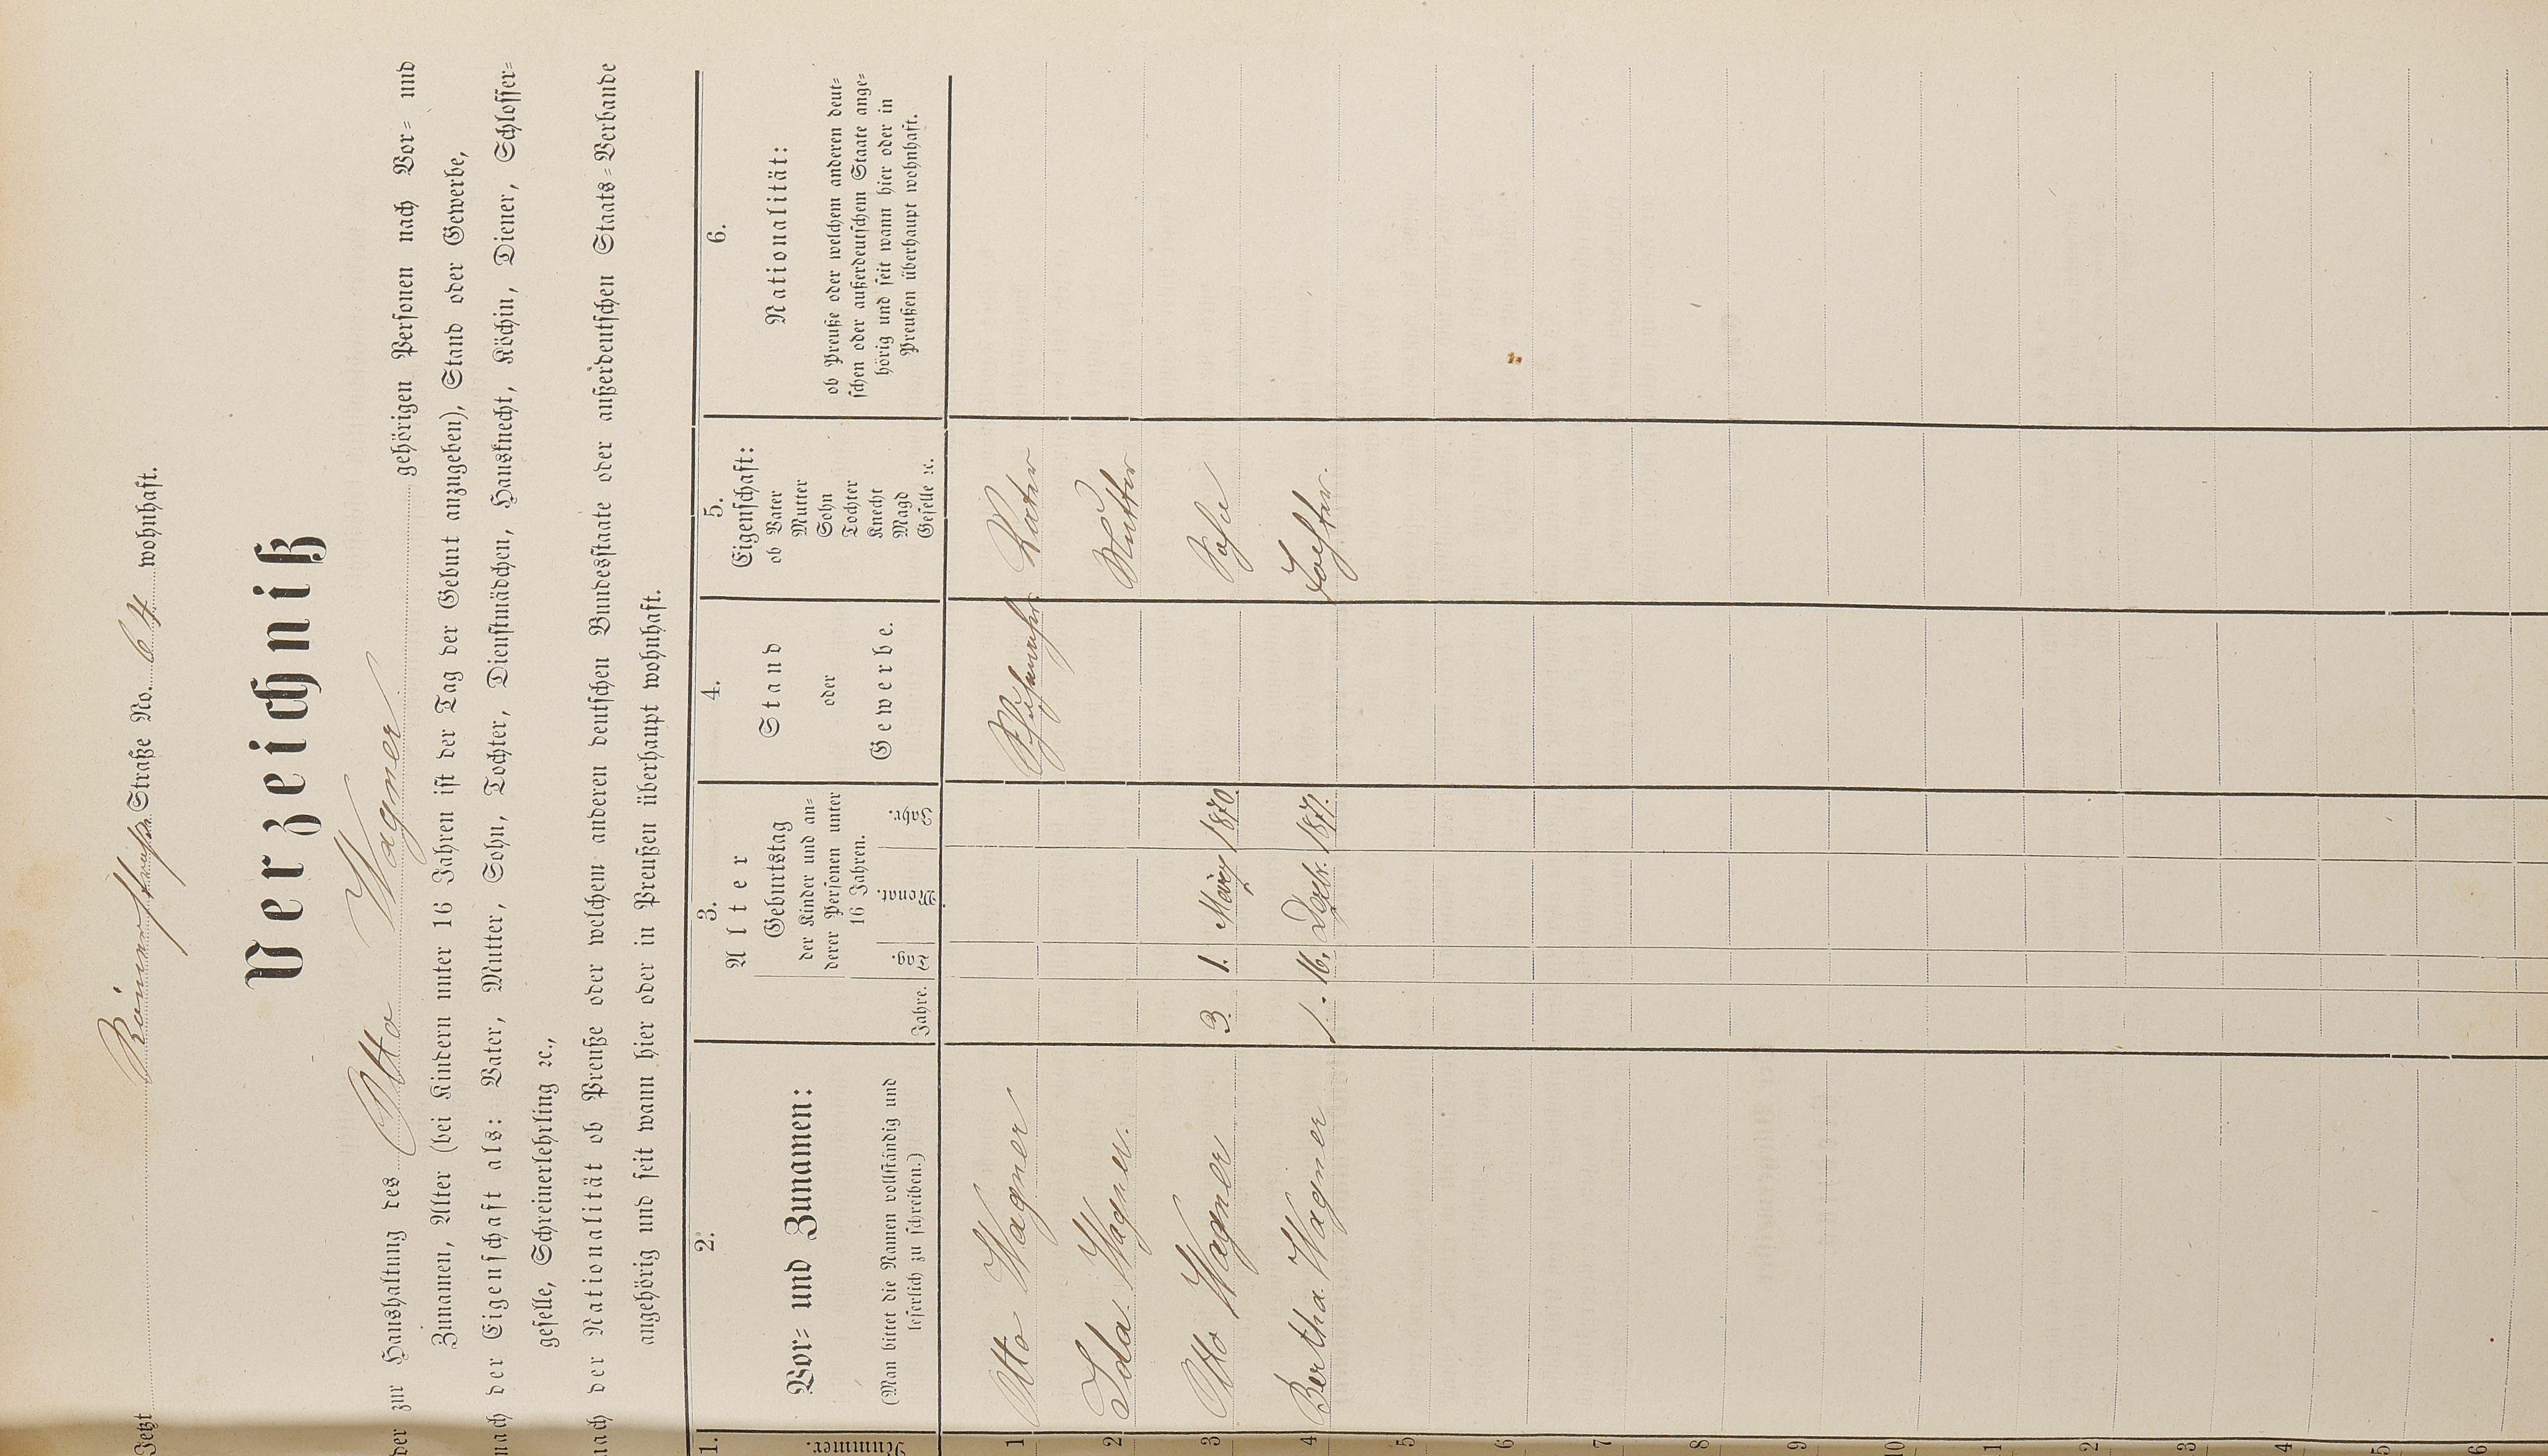 Jetzt Römerstraße Straße No. 64 wohnhaft.
Verzeichniß
der zur Haushaltung des Otto Wagner gehörigen Personen nach Vor= und
Zunamen, Alter (bei Kindern unter 16 Jahren ist der Tag der Geburt anzugeben), Stand oder Gewerbe,
nach der Eigenschaft als: Vater, Mutter, Sohn, Tochter, Dienstmädchen, Hausknecht, Köchin, Diener, Schlosser=
geselle, Schreinerlehrling ꝛc.,
nach der Nationalität ob Preuße oder welchem anderen deutschen Bundesstaate oder außerdeutschen Staats=Verbande
angehörig und seit wann hier oder in Preußen überhaupt wohnhaft.
1. 2. 3. 4. 5. 6.
Nummer.
Vor= und Zunamen:
(Man bittet die Namen vollständig und
leserlich zu schreiben.)
Alter
Jahre.
Geburtstag
der Kinder und an=
derer Personen unter
16 Jahren.
Tag. Monat. Jahr.
Stand
oder
Gewerbe.
Eigenschaft:
ob Vater
Mutter
Sohn
Tochter
Knecht
Magd
Geselle ꝛc.
Nationalität:
ob Preuße oder welchem anderen deut=
schen oder außerdeutschem Staate ange=
hörig und seit wann hier oder in
Preußen überhaupt wohnhaft.
1 Otto Wagner Vater
2 Ida Wagner. Mutter
3 Otto Wagner 3. 1. März 1870. Sohn
4 Bertha Wagner 1. 16. 1871. Tochter.
5
6
7
8
9
10
1
2
3
4
5
6